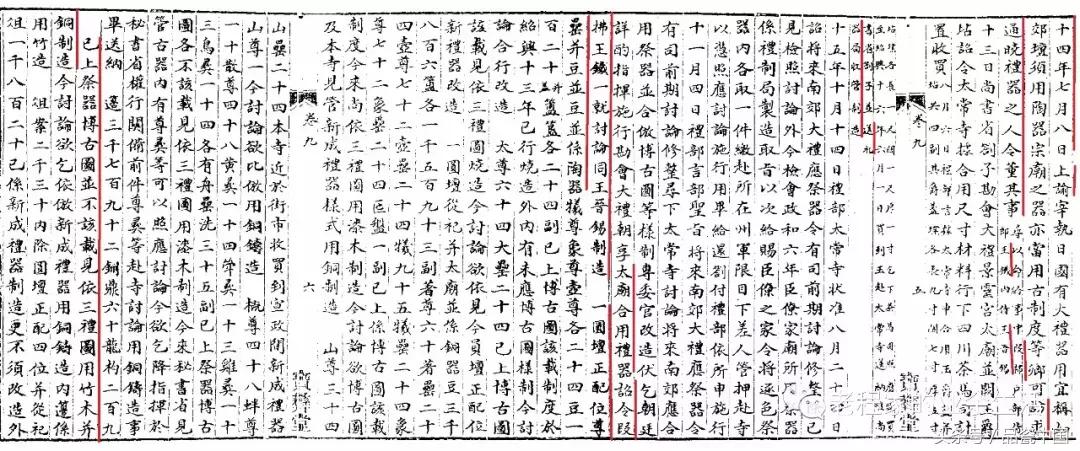 十四年七月八日上諭宰執曰國有大禮器用宜稱如
郊壇須用陶器宗廟之器亦當用古制度等卿可訪求
通曉禮器之人令董其事
十三日尚書省劄子勘會大禮景靈宮太廟並闕玉爵
坫詔令太常寺樣合用尺寸材料行下四川茶馬司計
置收買
卷九
五
十五年十月十四日禮部太常寺狀准八月二十四日
詔將來南郊大禮應祭器令有司前期討論修整除已
見檢照討論外今檢會政和六年臣僚家廟所用祭器
係禮制局製造取旨以次給賜臣僚之家今將逐色祭
器內各取一件繳赴所在州軍限日下差人管押赴寺
以憑照應討論施行用畢給還劄付禮部依所申施行
十一月四日禮部言奉聖旨將來南郊大禮應祭器令
有司前期討論修整尋下太常寺討論將來南郊應合
用祭器並合倣博古圖等樣制專委官改造伏乞朝廷
詳酌指揮施行勘會大禮朝享太廟合用禮器詔令段
拂王鈇一就討論同王晉錫制造　一圓壇正配位尊
罍并豆並係陶器犧尊象尊壺尊各二十四豆一
百二十并蓋簠簋各二十四副已上博古圖該載制度於
紹興十三年已行燒造外內有未應博古圖樣制今討
論合行改造　太尊六十四大罍二十四已上博古圖
該載見依三禮圖燒造今討論欲依見今員壇正配位
新禮器改造　一圓壇從祀并太廟並係銅器豆三千
八百六簠簋各一千五百九十三副著尊六十著罍二十
四壺尊七十二壺罍二十四犧尊九十五犧罍二十四象
尊七十二象罍二十四匜盤一副已上係博古圖該載
制度今來見依三禮圖用漆木制造今討論欲博古圖
及本寺見管新成禮器樣式用銅制造　山尊三十四
卷九
六
山罍二十四本寺近於街市收買到宣政閒新成禮器
山尊一今討論欲比倣用銅鑄造　概尊四十八蜃尊
一十散尊四十八黃彝一十四斝彝一十三雞彝一十
三鳥彝一十四各有舟罍洗三十五副已上祭器博古
圖各不該載見依三禮圖用漆木制造今來秘書省見
管古器內有尊彝等可以照應討論今欲乞降指揮於
秘書省權行關借前件尊彝等赴寺討論用銅鑄造事
畢送納　籩三千七百九十二銅鼎六十龍杓二百九
已上祭器博古圖並不該載見依三禮圖用竹木并
銅制造今討論欲乞依倣新成禮器用銅鑄造內籩係
用竹造　俎案二千三十內除圓壇正配四位并從祀
俎一千八百二十已係新成禮器制造更不須改造外
头条号/品瓷中国